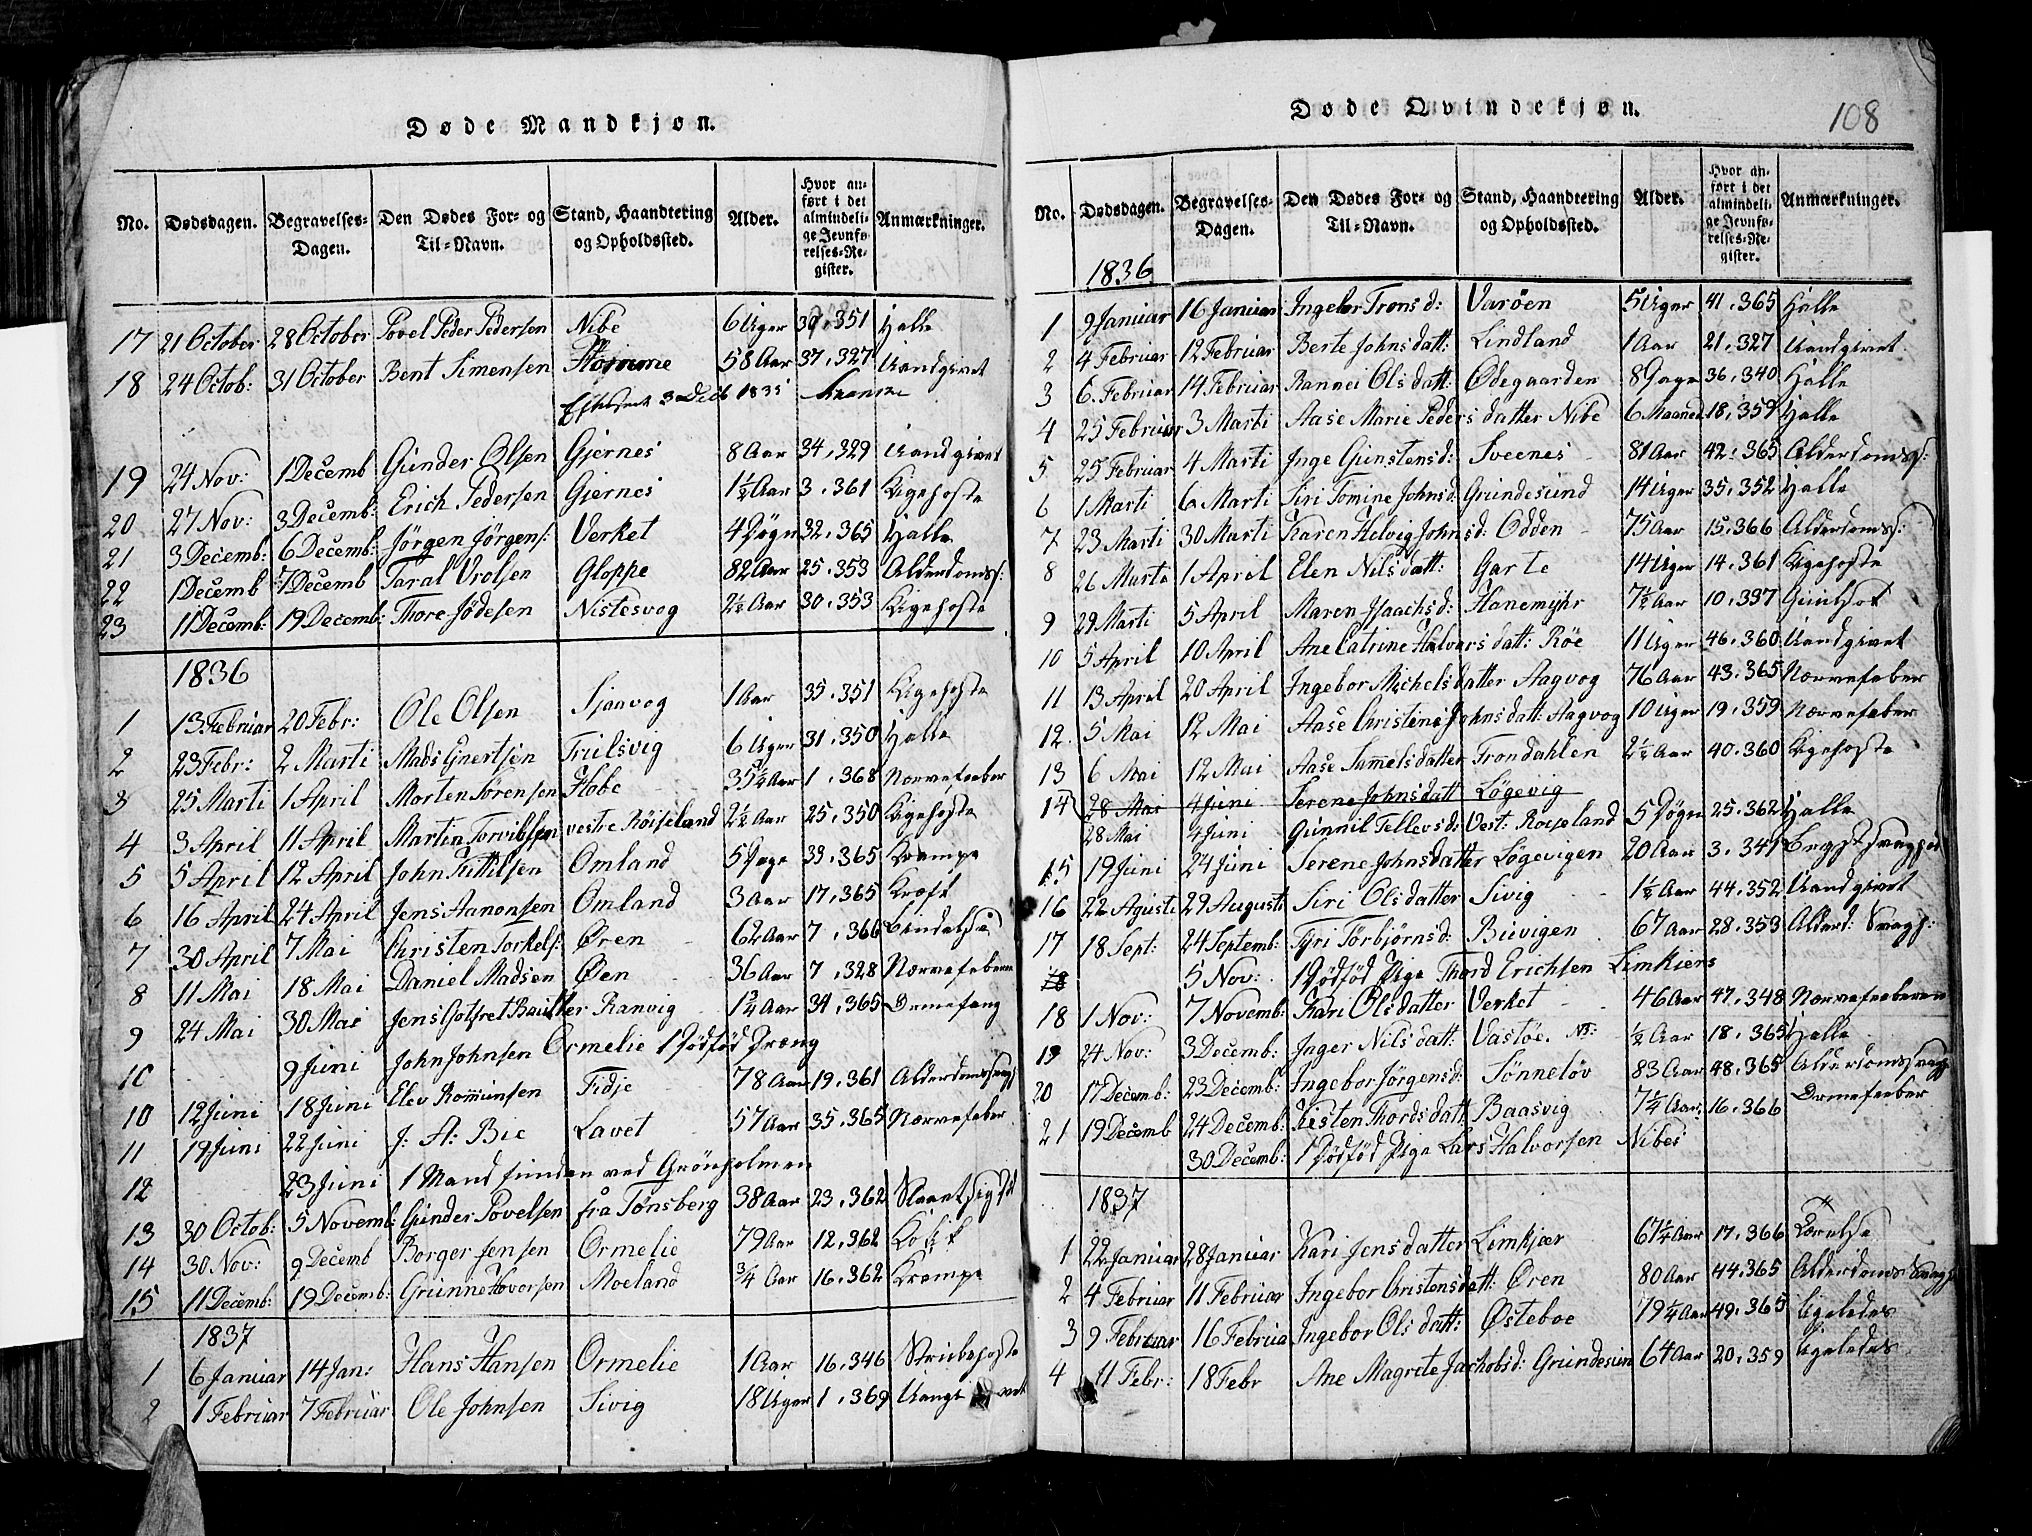 Døde Mandkjøn.
No. Dødsdagen. Begravelses-Dagen. Den Dødes For- og Til-Navn. Stand, Haandtering og Opholdssted. Alder. Hvor anført i det almindelige Jevnførelses-Register. Anmærkninger.
17 21 October 28 October Povel Peder Pedersen Nibe 6 Uger 39,351 Halle
18 24 Octob: 31 October Bent Simensen 58 Aar 37,327 Uandgivet
3 1835
19 24 Nov: 1 Decemb Gunder Olsen Gjernes 8 Aar 34,329 Uandgivet
20 27 Nov: 3 Decemb: Erich Pedersen Gjernes 1½ Aar 3,361 Kigehoste
21 3 Decemb: 6 Decemb: Jørgen Jørgens: Verket 4 Døgn 32,365 Halle
22 1 Decemb 7 Decemb Taral Vrolsen Gloppe 82 Aar 25,353 Alderdomss:
23 11 Decemb: 19 Decemb: Thore Jødesen Nistesvog 2½ Aar 30,353 Kigehoste
1836
1 13 Februar 20 Febr: Ole Olsen Sjaavog 1 Aar 35,351 Kigehoste
2 23 Febr: 2 Marti Mads Gnertsen Trulsvig 6 Uger 31,350 Halle
3 25 Marti 1 April Morten Sørensen Flobe 35½ Aar 1,368 Nervefeber
4 3 April 11 April Martin Torvildsen vestre Röiseland 2½ Aar 25,350 Kigehoste
5 5 April 12 April John Kittilsen Omland 5 Dage 39,365 Krampe
6 16 April 24 April Jens Aanonsen Omland 3 Aar 17,365 Kræft
7 30 April 7 Mai Christen Torkels: Øren 62 Aar 7,366
8 11 Mai 18 Mai Daniel Madsen Øen 36 Aar 7,328 Nervefeberen
9 24 Mai 30 Mai Jens Gotfret Ranvig 1¾ Aar 34,365 Ormefang
10 9 Juni John Johnsen Ormelie 1 Dödföd Dræng
10 12 Juni 18 Juni Elev Romunsen Fidje 78 Aar 19,361 Alderdomssvagh
11 19 Juni 22 Juni J: A: Bie Lavet 57 Aar 35,365 Nervefeber
12 23 Juni 1 Mand funden ved Grönholmen
13 30 Octob: 5 Novemb: Gunder Povelsen frå Tønsberg 38 Aar 23,362
14 30 Nov: 9 Decemb Borger Jensen Ormelie 79 Aar 12,362
15 11 Decemb: 19 Decemb: Grunne Hovorsen Moeland ¾ Aar 16,362 Krampe
1837
1 6 Januar 14 Jan: Hans Hansen Ormelie 1 Aar 16,346 Strubehoste
2 1 Februar 7 Februar Ole Johnsen Sivig 18 Uger 1,369
Døde Qvindekjøn.
108
No. Dødsdagen. Begravelses-Dagen. Den Dødes For- og Til-Navn. Stand, Haandtering og Opholdssted. Alder. Hvor anført i det almindelige Jevnførelses-Register. Anmærkninger.
1836
1 9 Januar 16 Januar Ingebor Trons d: Varöen 5 Uger 41,365 Halle
2 4 Februar 12 Februar Berte Johns datt: Lindland 1 Aar 21,327 Uandgivet
3 6. Februar 14 Februar Rannei Ols datt: Ødegaarden 8 Dage 36,340 Halle
4 25 Februar 3 Marti Aase Marie Peders datter Nibe 6 Maaned 18,359 Halle
5 25 Februar 4 Marti Inge Gunstens d: Sveenes 81 Aar 42,365 Alderdomss:
6 1 Marti 6 Marti Siri Tomine Johns d: Grundesund 14 Uger 35,352 Halle
7 23 Marti 30 Marti Karen Helvig Johns d: Odden 75 Aar 15,366 Alderdomss:
8 26 Marti 1 April Elen Nils datt: Garte 14 Uger 14,361 Kigehoste
9 29 Marti 5 April Maren Isaachs d: Hanemyhr 7½ Aar 10,337 Guulsot
10 5 April 10 April Ane Catrine Halvers datt: Röe 11 Uger 46,360 Uandgivet
11 13 April 20 April Ingebor Michels datter Aagvog 76 Aar 43,365 Nervefeber
12. 5 Mai 12 Mai Aase Christine Johns datt: Aagvog 10 Uger 19,359 Nervefeber
13 6 Mai 12 Mai Aase Samels datter Trondahlen 2½ Aar 40,360 Kigehoste
14 28 Mai 4 Juni Serene Johnsdatt Lögevig
28 Mai 4 Juni Gunnil Tellevs d: Vest: Roiseland 5 Døgn 25,362 Halle
15 19 Juni 24 Juni Serene Johnsdatter Lögevigen 20 Aar 3,341
16 22 Agusti 29 Augusti Siri Ols datter Sivig 1½ Aar 44,352 Uandgivet
17 18 Sept: 24 Septemb: Tyri Törbjörns d: Buvigen 67 Aar 28,353 Alderd: Svagh:
18 5 Nov: 1 Dödföd Pige Thord Erichsen Limkiers
18 1 Nov: 7 Novemb: Kari Ols datter Verket 46 Aar 47,348 Nervefeberen
19 24 Nov: 3 Decemb: Inger Nils datt: Vastöe. NB: ½ Aar 18,365 Halle
20 17 Decemb: 23 Decemb: Ingebor Jörgens d: Sönneløv 83 Aar 48,365 Alderdomssvagh
21 19 Decemb 24 Decemb: Kisten Thords datt Baasvig 7¼ Aar 16,366 Ormefeeber
30 Decemb: 1 Dödföd Pige Lars Halvorsen Nibes
1837
1 22 Januar 28 Januar Kari Jens datter Limkjær 67¼ Aar 17,366
2 4 Februar 11 Februar Ingebor Christens datt: Øren 80 Aar 44,365 Alderdoms Svagh
3 9 Februar 16 Februa Ingebor Ols datt: Østeboe 79¼ Aar 49,365 ligeledes
4 11 Febr: 18 Febr Ane Magrete Jachobs d: Grundesun 64 Aar 20,359 ligeledes